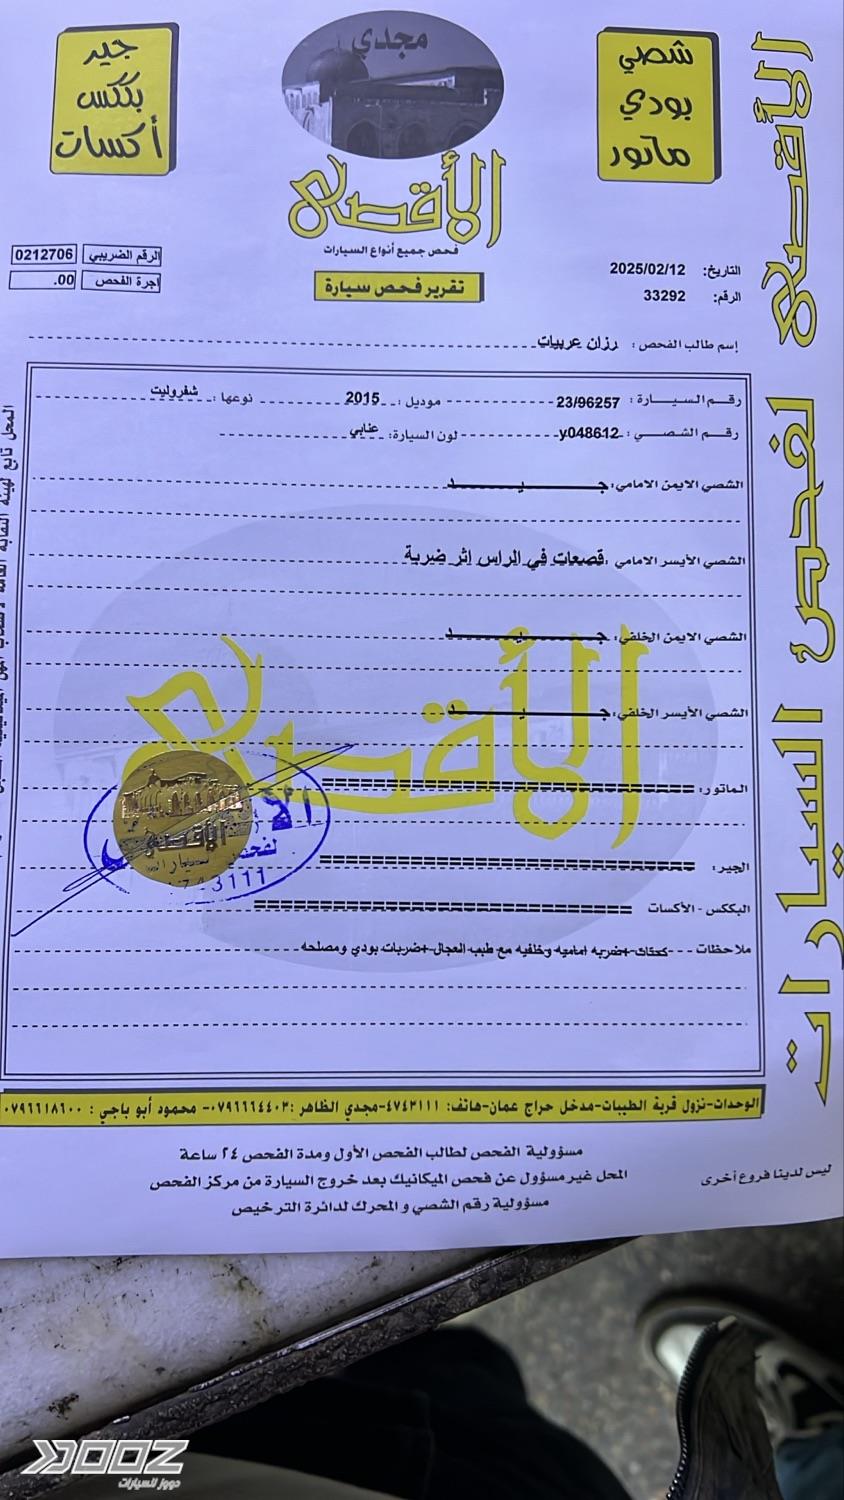 مجدي
الأقصى
فحص جميع أنواع السيارات
تقرير فحص سيارة
شصي
بودي
ماتور
جير
بككس
أكسات
الأقصى لفحص السيارات
الرقم الضريبي 0212706
اجرة الفحص 00.
التاريخ: 2025/02/12
الرقم: 33292
إسم طالب الفحص: رزان عربيات
رقم السيارة: 23/96257 موديل: 2015 نوعها: شفروليت
رقم الشصي: y048612 لون السيارة: عنابي
الشصي الايمن الامامي: جيد
الشصي الأيسر الامامي: قصعات في الراس إثر ضربة
الشصي الايمن الخلفي: جيد
الشصي الأيسر الخلفي: جيد
الماتور: ==========
الجير: ==========
البككس - الأكسات ==========
ملاحظات --- + ضربه اماميه وخلفيه مع طبب العجال + ضربات بودي ومصلحه
الأقصى
لفحص السيارات
743111
الوحدات-نزول قرية الطيبات-مدخل حراج عمان-هاتف: ٤٧٤٣١١١-مجدي الظاهر: ٠٧٩٦٦٦٤٤٠٣- محمود أبو باجي: ٠٧٩٦٦١٨٦٠٠
مسؤولية الفحص لطالب الفحص الأول ومدة الفحص ٢٤ ساعة
المحل غير مسؤول عن فحص الميكانيك بعد خروج السيارة من مركز الفحص
مسؤولية رقم الشصي و المحرك لدائرة الترخيص
ليس لدينا فروع أخرى
المحل تابع لهيئة النقابة العامة
DOOZ
دووز للسيارات